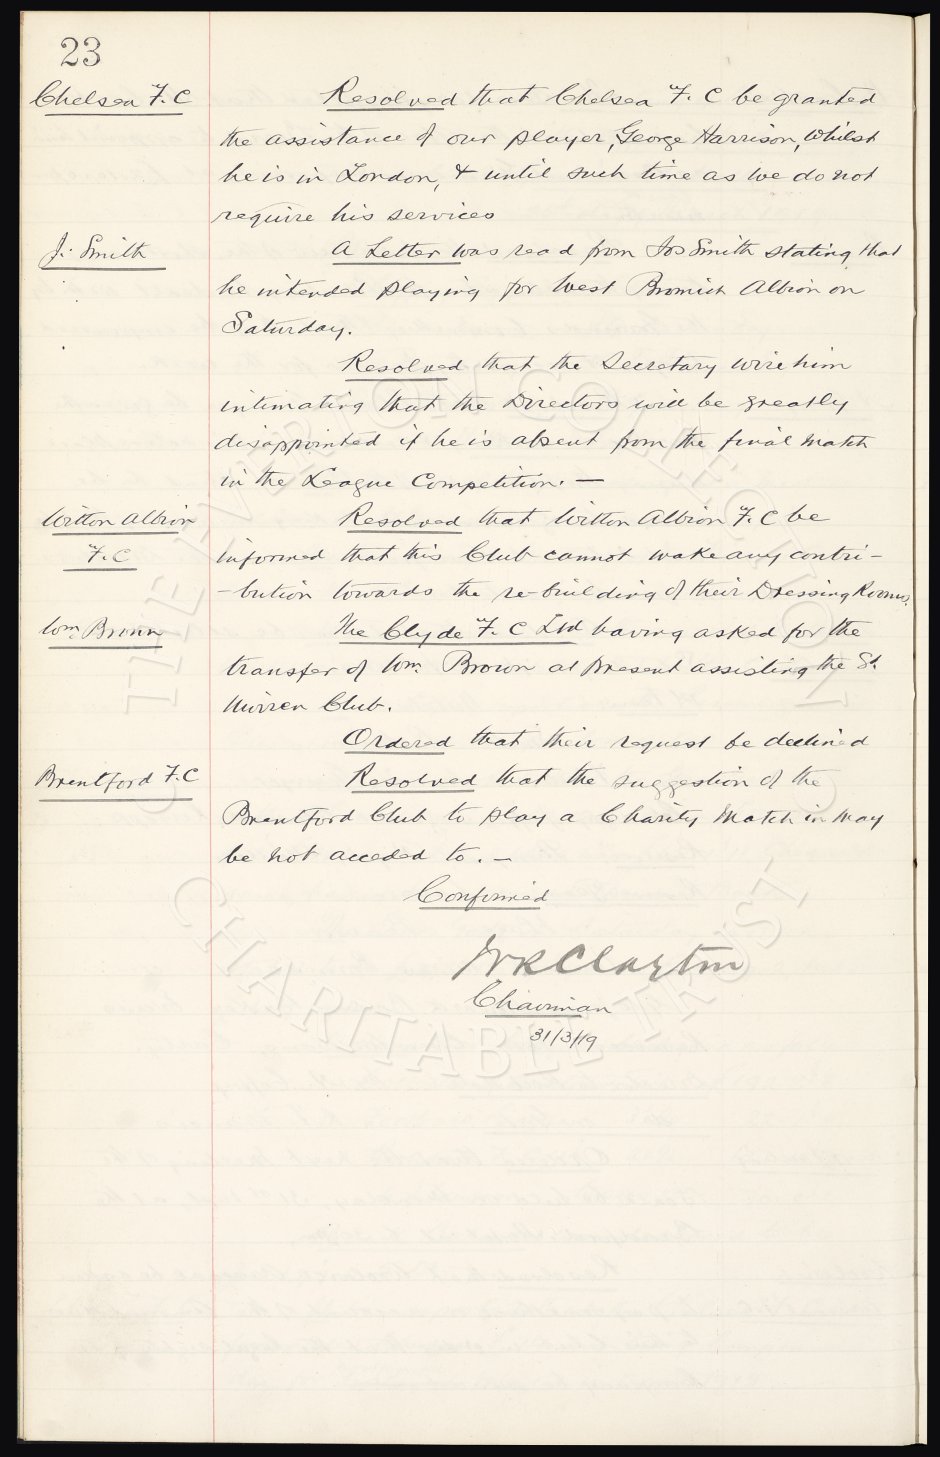 23
Chelsea F.C
Resolved that Chelsea F.C be granted
the assistance of our player, George Harrison, whilst
he is in London, & until such time as we do not
require his services
J. Smith
A Letter was read from Jos Smith stating that
he intended playing for West Bromich Albion on
Saturday.
Resolved that the Secretary wire him
intimating that the Directors will be greatly
disappointed if he is absent from the final match
in the League Competition. —
Witton Albion
F.C
Resolved that Witton Albion F.C be
informed that this Club cannot make any contri-
-bution towards the re-building of their Dressing Rooms.
Wm. Brown
The Clyde F.C Ltd having asked for the
transfer of Wm. Brown at present assisting the St.
Mirren Club.
Ordered that their request be declined
Brentford F.C
Resolved that the suggestion of the
Brentford Club to play a Charity Match in May
be not acceded to. —
Confirmed
W R Clayton
Chairman
31/3/19
THE EVERTON COLLECTION
CHARITABLE TRUST